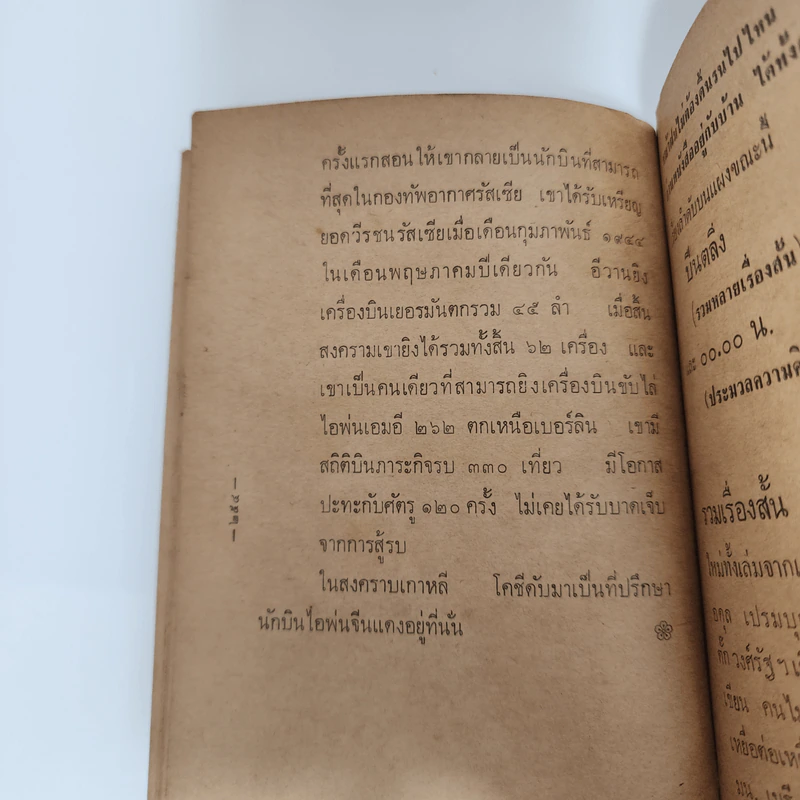 ครั้งแรกสอนให้เขากลายเป็นนักบินที่สามารถ
ที่สุดในกองทัพอากาศรัสเซีย เขาได้รับเหรียญ
ยอดวีรชนรัสเซียเมื่อเดือนกุมภาพันธ์ ๑๙๔๔
ในเดือนพฤษภาคมปีเดียวกัน อีวานยิง
เครื่องบินเยอรมันตกรวม ๔๕ ลำ เมื่อสิ้น
สงครามเขายิงได้รวมทั้งสิ้น ๖๒ เครื่อง และ
เขาเป็นคนเดียวที่สามารถยิงเครื่องบินขับไล่
ไอพ่นเอมอี ๒๖๒ ตกเหนือเบอร์ลิน เขามี
สถิติบินภาระกิจรบ ๓๓๐ เที่ยว มีโอกาส
ปะทะกับศัตรู ๑๒๐ ครั้ง ไม่เคยได้รับบาดเจ็บ
จากการสู้รบ
ในสงคราบเกาหลี โคชีดับมาเป็นที่ปรึกษา
นักบินไอพ่นจีนแดงอยู่ที่นั่น
— ๒๕๔ —
ไม่ต้องดิ้นรนไปไหน
อยู่กับบ้าน ได้ทั้ง
บนแผงขณะนี้
ปืนตลิ่ง
(รวมหลายเรื่องสั้น)
และ ๐๐.๐๐ น.
(ประมวลความ
รวมเรื่องสั้น
ใหม่ทั้งเล่มจาก
เปรมบุ
วงศ์รัฐฯ
เขียน คนไ
เหยื่อต่อเห